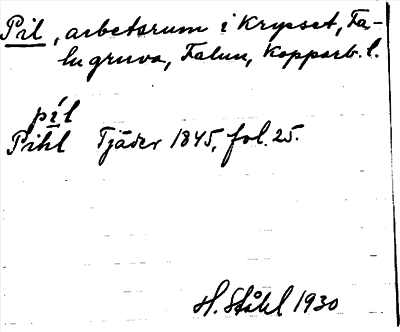 Pil, arbetsrum i Krysset, Fa-
lu gruva, Falun, Kopparb. l.
píl
Pihl Tjäder 1845, fol. 25.
H. Ståhl 1930